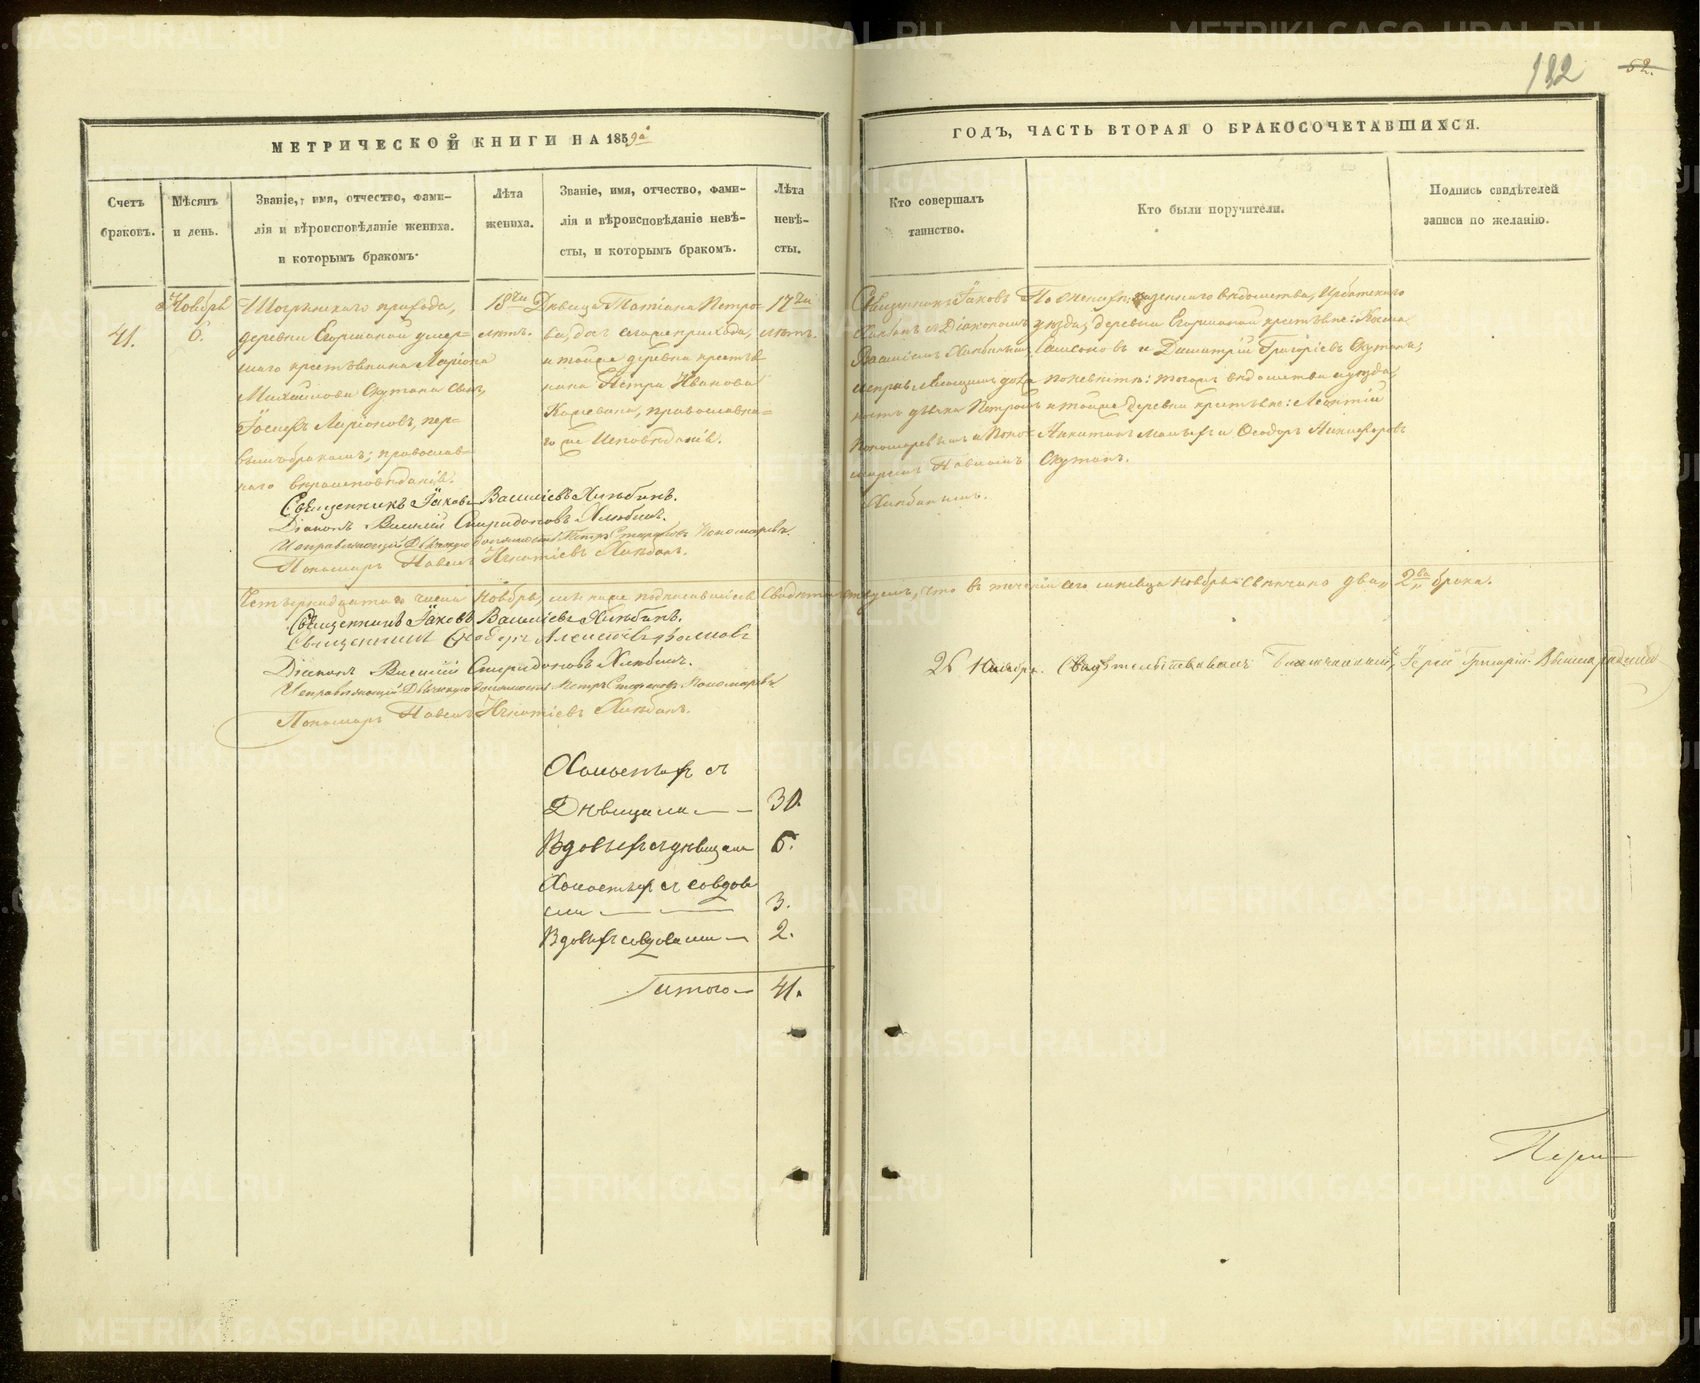 182
52.
МЕТРИЧЕСКОЙ КНИГИ НА 1859й
ГОДЪ, ЧАСТЬ ВТОРАЯ О БРАКОСОЧЕТАВШИХСЯ.
Счетъ
браковъ.
Мѣсяцъ
и день.
Званіе, имя, отчество, фами-
лія и вѣроисповѣданіе жениха.
и которымъ бракомъ.
Лѣта
жениха.
Званіе, имя, отчество, фами-
лія и вѣроисповѣданіе невѣ-
сты, и которымъ бракомъ.
Лѣта
невѣ-
сты.
Кто совершалъ
таинство.
Кто были поручители.
Подпись свидѣтелей
записи по желанію.
41.
Ноября
6.
прихода,
деревни Егоршиной умер-
шаго крестьянина Ларіона
Михайлова Скутина сынъ
Іосифъ Ларіоновъ, пер-
вымъ бракомъ; православ-
наго вѣроисповѣданія.
18ти
лѣтъ.
Дѣвица Татіана Петро-
ва, дочь сегоже прихода,
и тойже деревни крестья
нина Петра Иванова
православна-
го же исповѣданія.
17ти
лѣтъ.
Священникъ Іаковъ
съ Діакономъ
Василіемъ
исправляющимъ долж
ность дьячка Петромъ
Пономаревымъ и Поно-
маремъ Павломъ
По женихѣ: казеннаго вѣдомства, Ирбитскаго
уѣзда, деревни Егоршиной крестьяне: Косма
Самсоновъ и Димитрій Григоріевъ Скутины;
по невѣстѣ: тогожъ вѣдомства и уѣзда,
и тойже деревни крестьяне: Леонтій
и Ѳеодоръ Никифоровъ
Скутинъ.
Священникъ Іаковъ Василіевъ Хлѣбинъ.
Діаконъ Василій Спиридоновъ Хлѣбинъ.
Исправляющій Дьячкую должность Петръ Стефановъ Пономаревъ.
Пономарь Павелъ Игнатіевъ Хлѣбинъ.
Четырнадцатаго числа Ноября, мы ниже подписавшіеся свидѣтельствуемъ, что въ теченіи сего мѣсяца Ноября свѣнчано два 2ва брака.
Священникъ Іаковъ Василіевъ Хлѣбинъ.
Священникъ Ѳеодоръ Алексіевъ
Діаконъ Василій Спиридоновъ Хлѣбинъ.
Исправляющій Дьячкую должность Петръ Стефановъ Пономаревъ
Пономарь Павелъ Игнатіевъ Хлѣбинъ.
26 Ноября. Свидѣтельствовалъ Благочинный, Іерей Григорій
Холостыхъ съ
Дѣвицами — 30
Вдовыхъ съ дѣвицами 6.
Холостыхъ съ совдов
ами — 3.
Вдовыхъ съ вдовами — 2.
Итого — 41.